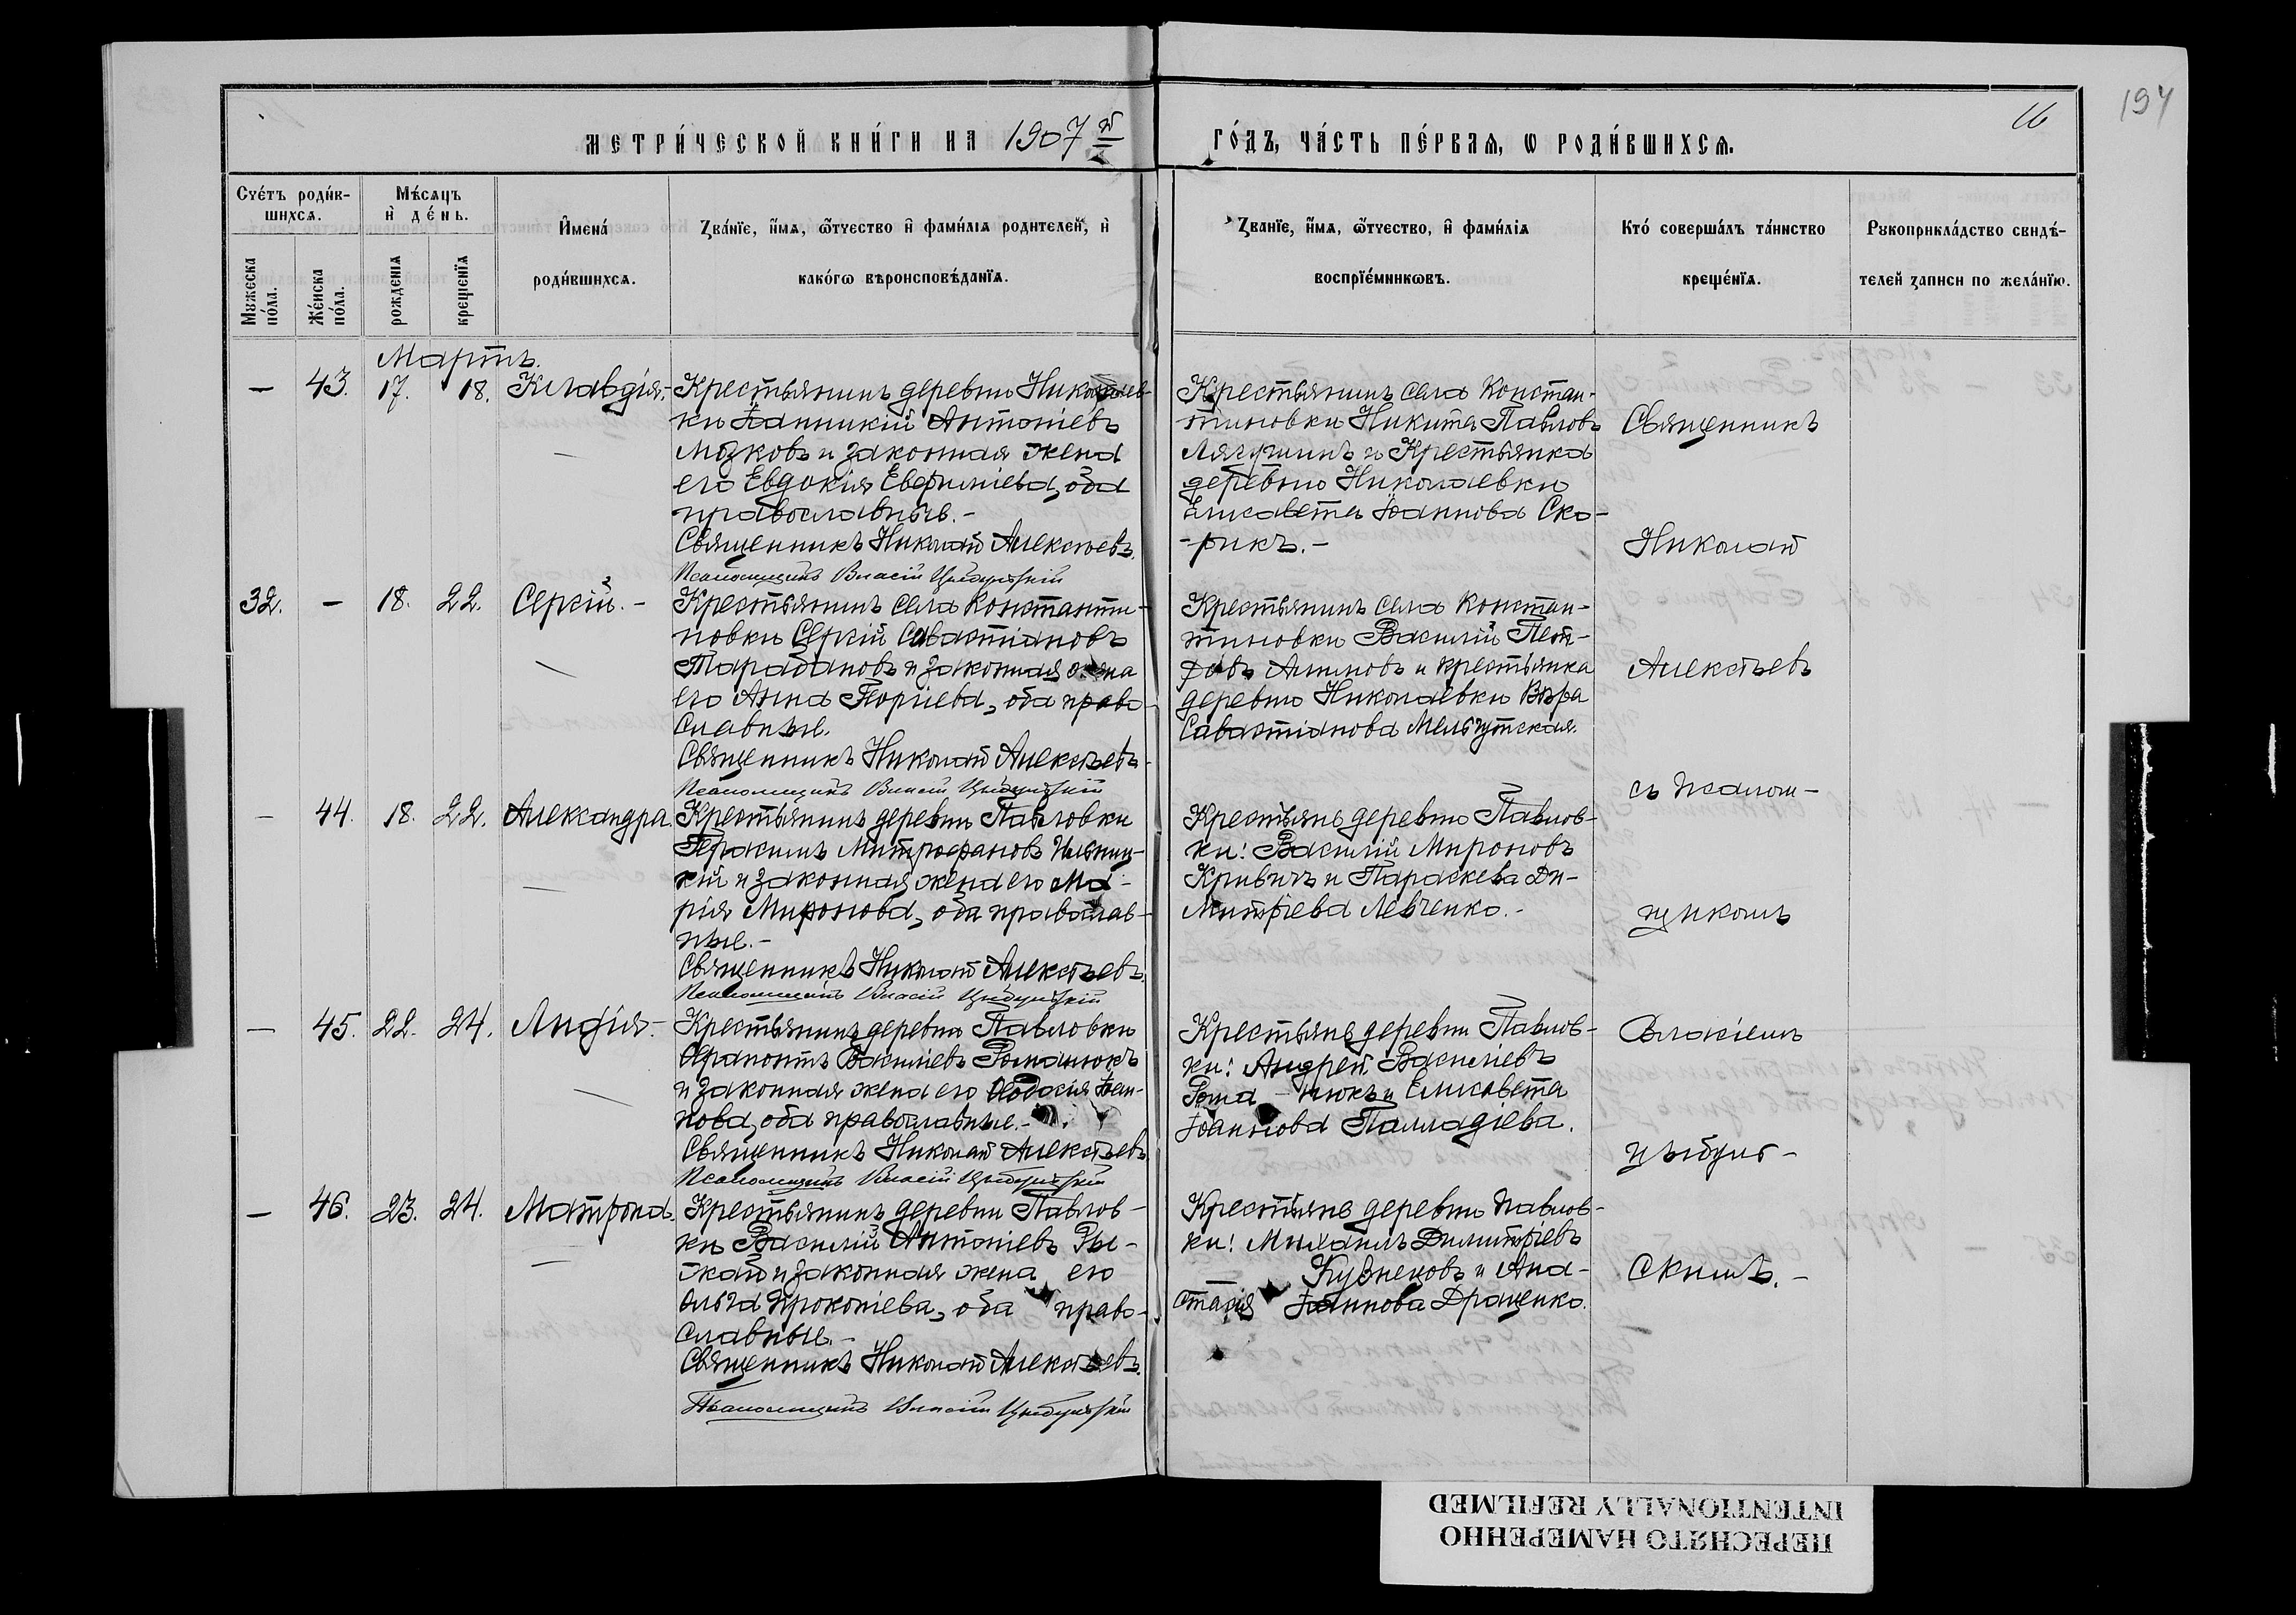 197
16
МЕТРИ́ЧЕСКОЙ КНИ́ГИ НА 1907й
ГО́ДЪ, ЧА́СТЬ ПЕ́РВАѦ, Ѡ РОДИ́ВШИХСѦ.
Сче́тъ роди́в-
шихсѧ.
Мꙋжеска
по́ла.
Же́нска
по́ла.
Мѣ́сѧцъ
и҆ де́нь.
рожденїѧ
крещенїѧ
И҆мена́
роди́вшихсѧ.
Зва́нїе, и҆́мѧ, ѻ҆́тчество и҆ фами́лїѧ родителей, и҆
како́гѡ вѣроисповѣ́данїѧ.
Зва́нїе, и҆́мѧ, ѻ҆́тчество, и҆ фами́лїѧ
воспрїе́мникѡвъ.
Кто́ соверша́лъ та́инство
креще́нїѧ.
Рꙋкоприкла́дство свидѣ́-
телей записи по жела́нїю.
Мартъ.
— 43. 17. 18. Клавдія.
Крестьянинъ деревни Николаев-
ки Іанникій Антоніевъ
Мозковъ и законная жена
его Евдокія Евфиміева, оба
православные.-
Священникъ Николай Алексѣевъ.
Псаломщикъ Власій Цыбульскій
Крестьянинъ села Констан-
тиновки Никита Павловъ
Лягушинъ и Крестьянка
деревни Николаевки
Елисавета Іоаннова Ско-
-рикъ.-
32. — 18. 22. Сергій.-
Крестьянинъ села Константи-
новки Сергій Савастіановъ
Тарабановъ и законная жена
его Анна Георгіева, оба право-
славные.
Священникъ Николай Алексѣевъ
Псаломщикъ Власій Цыбульскій
Крестьянинъ села Констан-
тиновки Василій Пет-
ровъ Алимовъ и крестьянка
деревни Николаевки Вѣра
Савастіанова
— 44. 18. 22. Александра.
Крестьянинъ деревни Павловки
Герасимъ Митрофановъ Ильниц-
кій и законная жена его Ма-
рія Миронова, оба православ-
ные.-
Священникъ Николай Алексѣевъ.
Псаломщикъ Власій Цыбульскій
Крестьяне деревни Павлов-
ки: Василій Мироновъ
Кривичъ и Параскева Ди-
митріева Левченко.-
— 45. 22. 24. Лидія.-
Крестьянинъ деревни Павловки
Ферапонтъ Василіевъ Романюкъ
и законная жена его Ѳеодосія Іоан-
нова, оба православные.-
Священникъ Николай Алексѣевъ
Псаломщикъ Власій Цыбульскій
Крестьяне деревни Павлов-
ки: Андрей Василіевъ
Рома - нюкъ и Елисавета
Іоаннова Палладіева.
— 46. 23. 24. Матрона.
Крестьянинъ деревни Павлов-
ки Василій Антоніевъ Ры-
жай и законная жена его
Ольга Прокопіева, оба право-
славные.-
Священникъ Николай Алексѣевъ.
Псаломщикъ Власій Цыбульскій
Крестьяне деревни Павлов-
ки: Михаилъ Димитріевъ
Кузнецовъ и Ана-
стасія Іоаннова Драценко.
Священникъ
Николай
Алексѣевъ
съ псалом-
щикомъ
Власіемъ
Цыбуль-
скимъ.-
ПЕРЕСНЯТО НАМЕРЕННО
INTENTIONALLY REFILMED